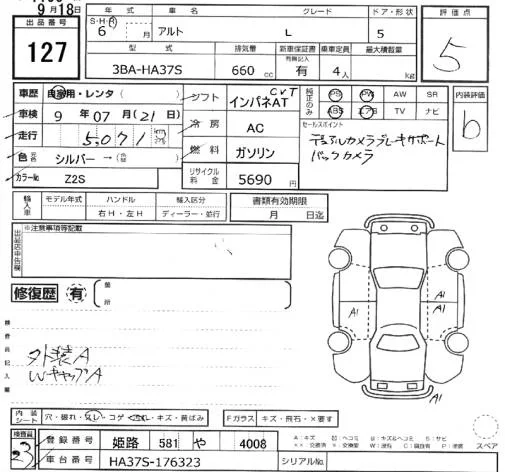 9月18日
出品番号
127
年式 車名 グレード ドア・形状
S-H-R 6 年 月 アルト L 5
型式 排気量 新車保証書 乗車定員 最大積載量
有無記入
3BA-HA37S 660 cc 有 4人 kg
評価点
5
内装評価
b
車歴 自家用・レンタ ( )
車検 9年07月(21)日
走行
色 シルバー → ( )
カラーNo Z2S
シフト CVT インパネAT
冷房 AC
燃料 ガソリン
リサイクル料金 5690 円
純正のみ PS PW AW SR
ABS エアB TV ナビ
セールスポイント
デュアルカメラブレーキサポート
バックカメラ
輸入車 モデル年式 ハンドル 輸入区分
右H・左H ディーラー・並行
書類有効期限
月 日迄
出品店申告欄 ※注意事項等記載
修復歴 有 箇所
検査員記入欄
外装A
WキャップA
A1
A1
A1
内装シート 穴・破れ・汚レ・コゲ・スレ・キズ・黄ばみ
Fガラス キズ・飛石・×要す
スペア
検査員
23
登録番号 姫路 581 や 4008
車台番号 HA37S-176323
シリアルNo.